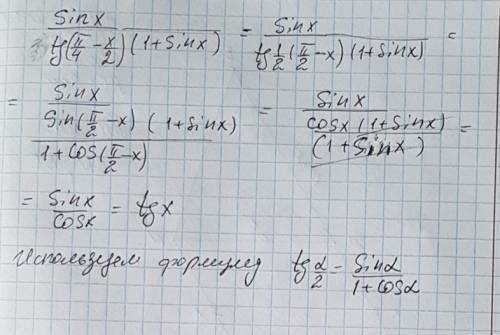 sinx / (tg(π/4 − x/2)(1+sinx)) = sinx / (tg 1/2(π/2 − x)(1+sinx)) =
= sinx / (sin(π/2 − x)(1+sinx) / (1+cos(π/2 − x))) = sinx / (cosx(1+sinx) / (1+sinx)) =
= sinx / cosx = tgx
Используем формулу tg α/2 = sinα / (1+cosα)